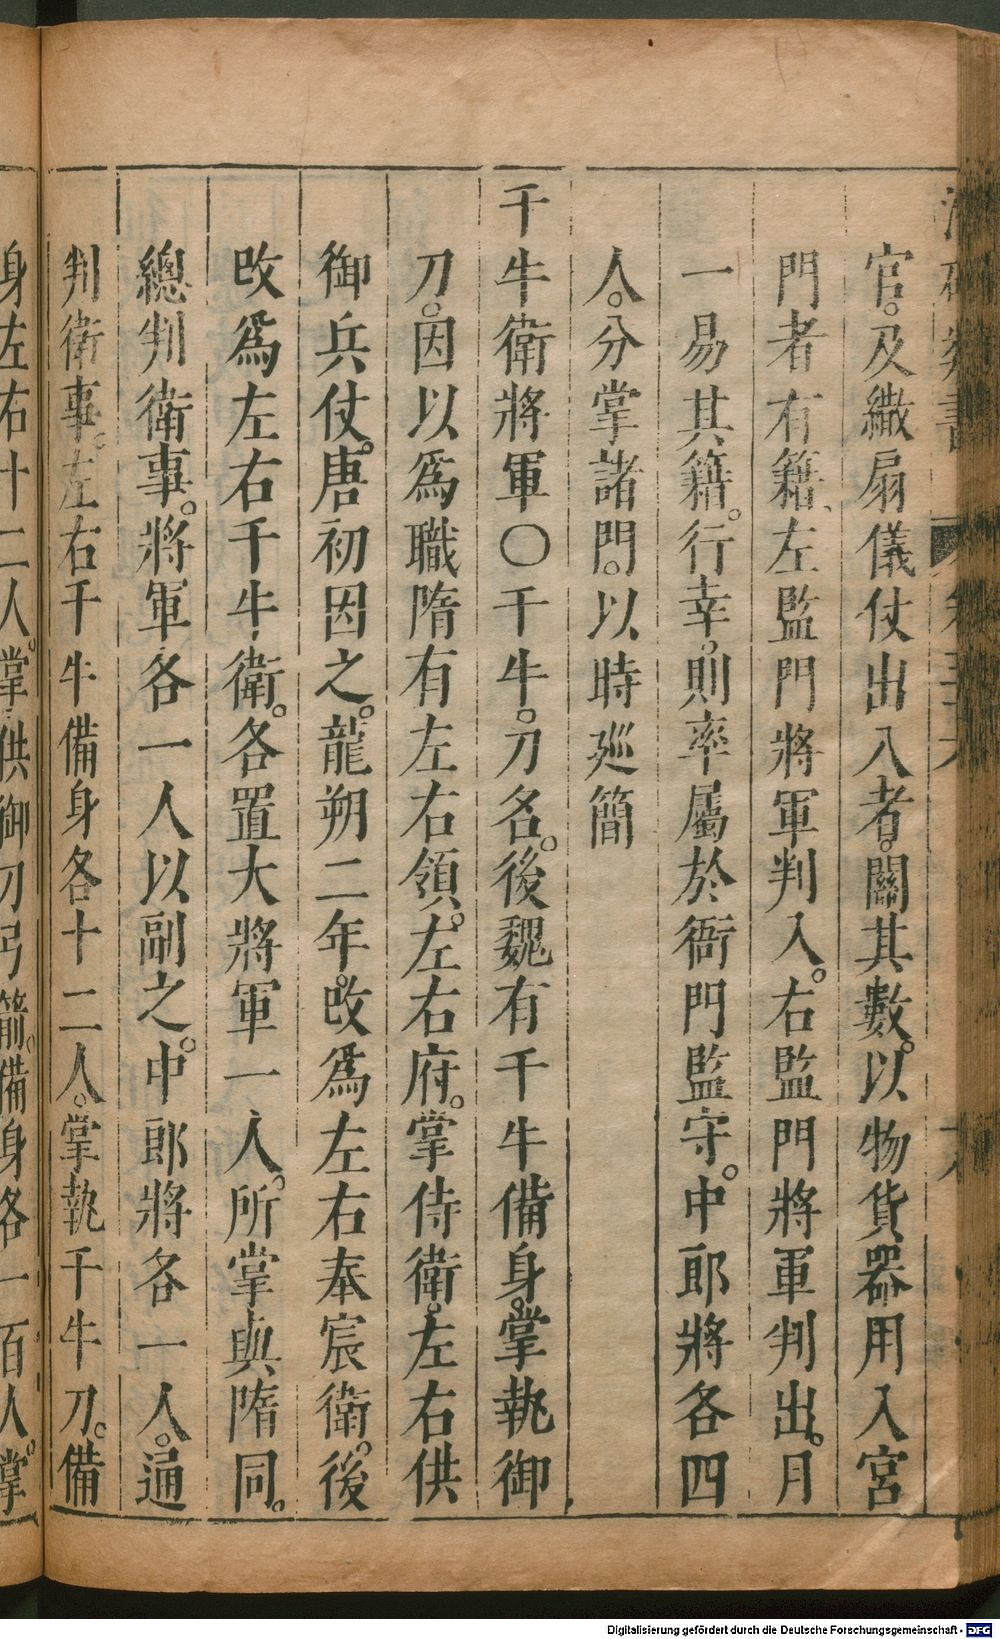 官。及繖扇儀仗出入者。關其數。以物貨器用入宮
門者有籍、左監門將軍判入。右監門將軍判出。月
一易其籍。行幸。則率屬於衙門監守。中郎將各四
人。分掌諸門。以時廵簡
千牛衛將軍〇千牛。刀名。後魏有千牛備身。掌執御
刀。因以爲職隋有左右領。左右府。掌侍衛。左右供
御兵仗。唐初因之。龍朔二年。改爲左右奉宸衛。後
改爲左右千牛衛。各置大將軍一人。所掌與隋同。
總判衛事。將軍各一人以副之。中郎將各一人。通
判衛事。左右千牛備身各十二人。掌執千牛刀。備
身左右十二人。掌供御刀弓箭。備身各一百人。掌
Digitalisierung gefördert durch die Deutsche Forschungsgemeinschaft - DFG